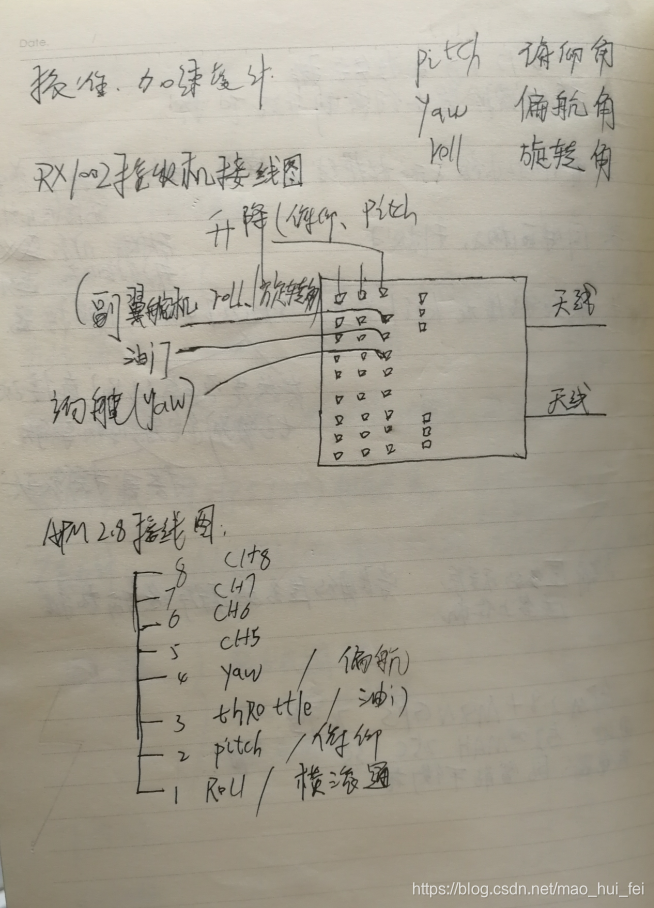 Date.
校准.加速度计
pitch 俯仰角
yaw 偏航角
roll 旋转角
RX1002接收机接线图
升降(俯仰、pitch
(副翼舵机 roll、旋转角)
油门
方向舵(yaw)
天线
天线
APM 2.8接线图.
8 CH8
7 CH7
6 CH6
5 CH5
4 yaw / 偏航
3 thRottle / 油门
2 pitch / 俯仰
1 Roll / 横滚通
https://blog.csdn.net/mao_hui_fei